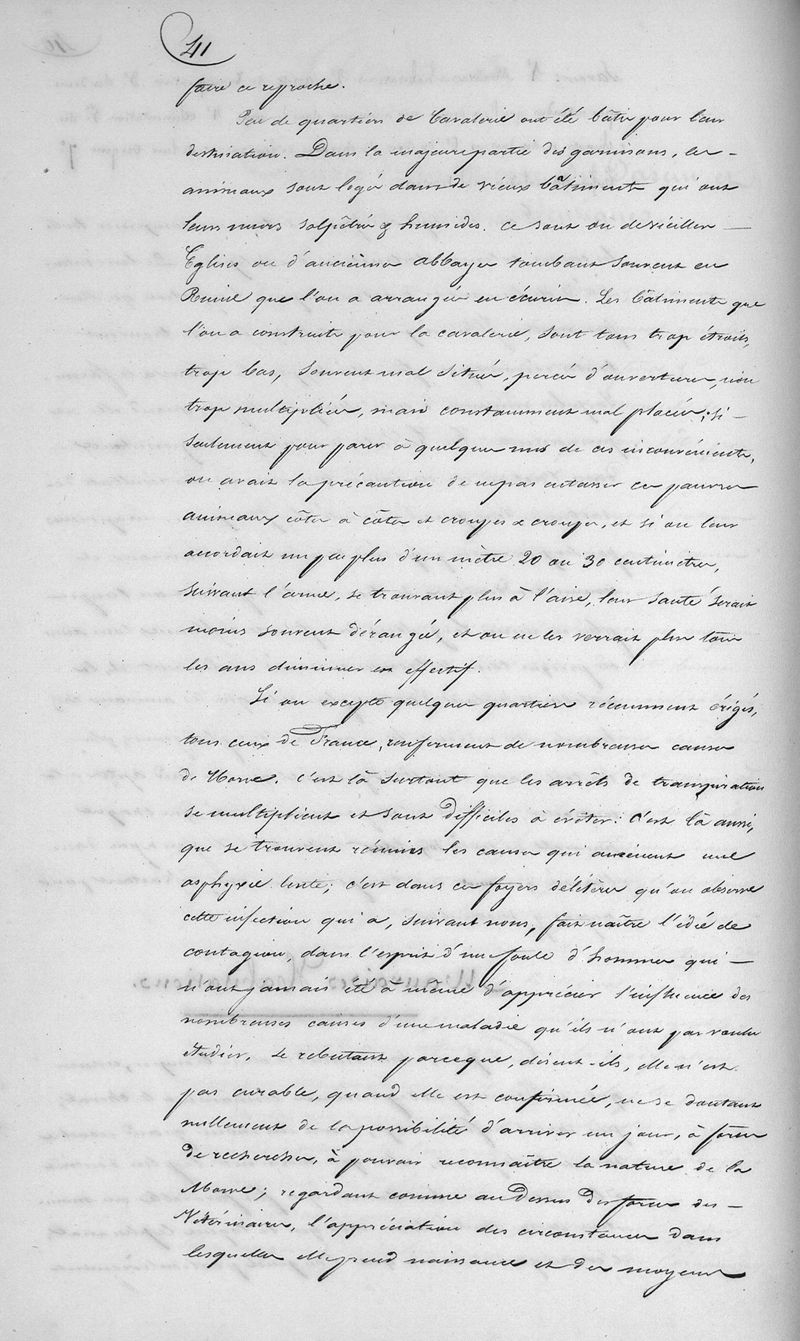 41
faire ce reproche.
Peu de quartiers de Cavalerie ont été bâtis pour leur
destination. Dans la majeure partie des garnisons, les
animaux sont logés dans de vieux bâtiments qui ont
leurs murs salpêtrés & humides. ce sont ou de vieilles
Eglises ou d'anciennes abbayes tombant souvent en
Ruine que l'on a arrangées en écuries. Les bâtiments que
l'on a construits pour la cavalerie, sont tous trop étroits,
trop bas, souvent mal situés, percés d'ouvertures, non
trop multipliées, mais constamment mal placées; si
seulement pour parer à quelques uns de ces inconvénients,
on avait la précaution de ne pas entasser ces pauvres
animaux côtes à côtes et croupes à croupes, et si on leur
accordait un peu plus d'un mètre 20 ou 30 centimètres,
suivant l'arme, se trouvant plus à l'aise, leur santé serait
moins souvent dérangée, et on ne les verrait plus tous
les ans diminuer en effectif.
Si on excepte quelques quartiers récemment érigés,
tous ceux de France, renferment de nombreuses causes
de Morve. c'est là surtout que les arrêts de transpiration
se multiplient et sont difficiles à éviter: c'est là aussi,
que se trouvent réunies les causes qui amènent une
asphyxie lente; c'est dans ces foyers délétères qu'on observe
cette infection qui a, suivant nous, fait naître l'idée de
contagion, dans l'esprit d'une foule d'hommes qui
n'ont jamais été à même d'apprécier l'influence des
nombreuses causes d'une maladie qu'ils n'ont pas voulu
étudier, se rebutant parceque, disent-ils, elle n'est
pas curable, quand elle est confirmée, ne se doutant
nullement de la possibilité d'arriver un jour, à force
de recherches, à pouvoir reconnaître la nature de la
Morve; regardant comme au Dessus des forces des
Vétérinaires, l'appréciation des circonstances dans
lesquelles elle prend naissance et des moyens